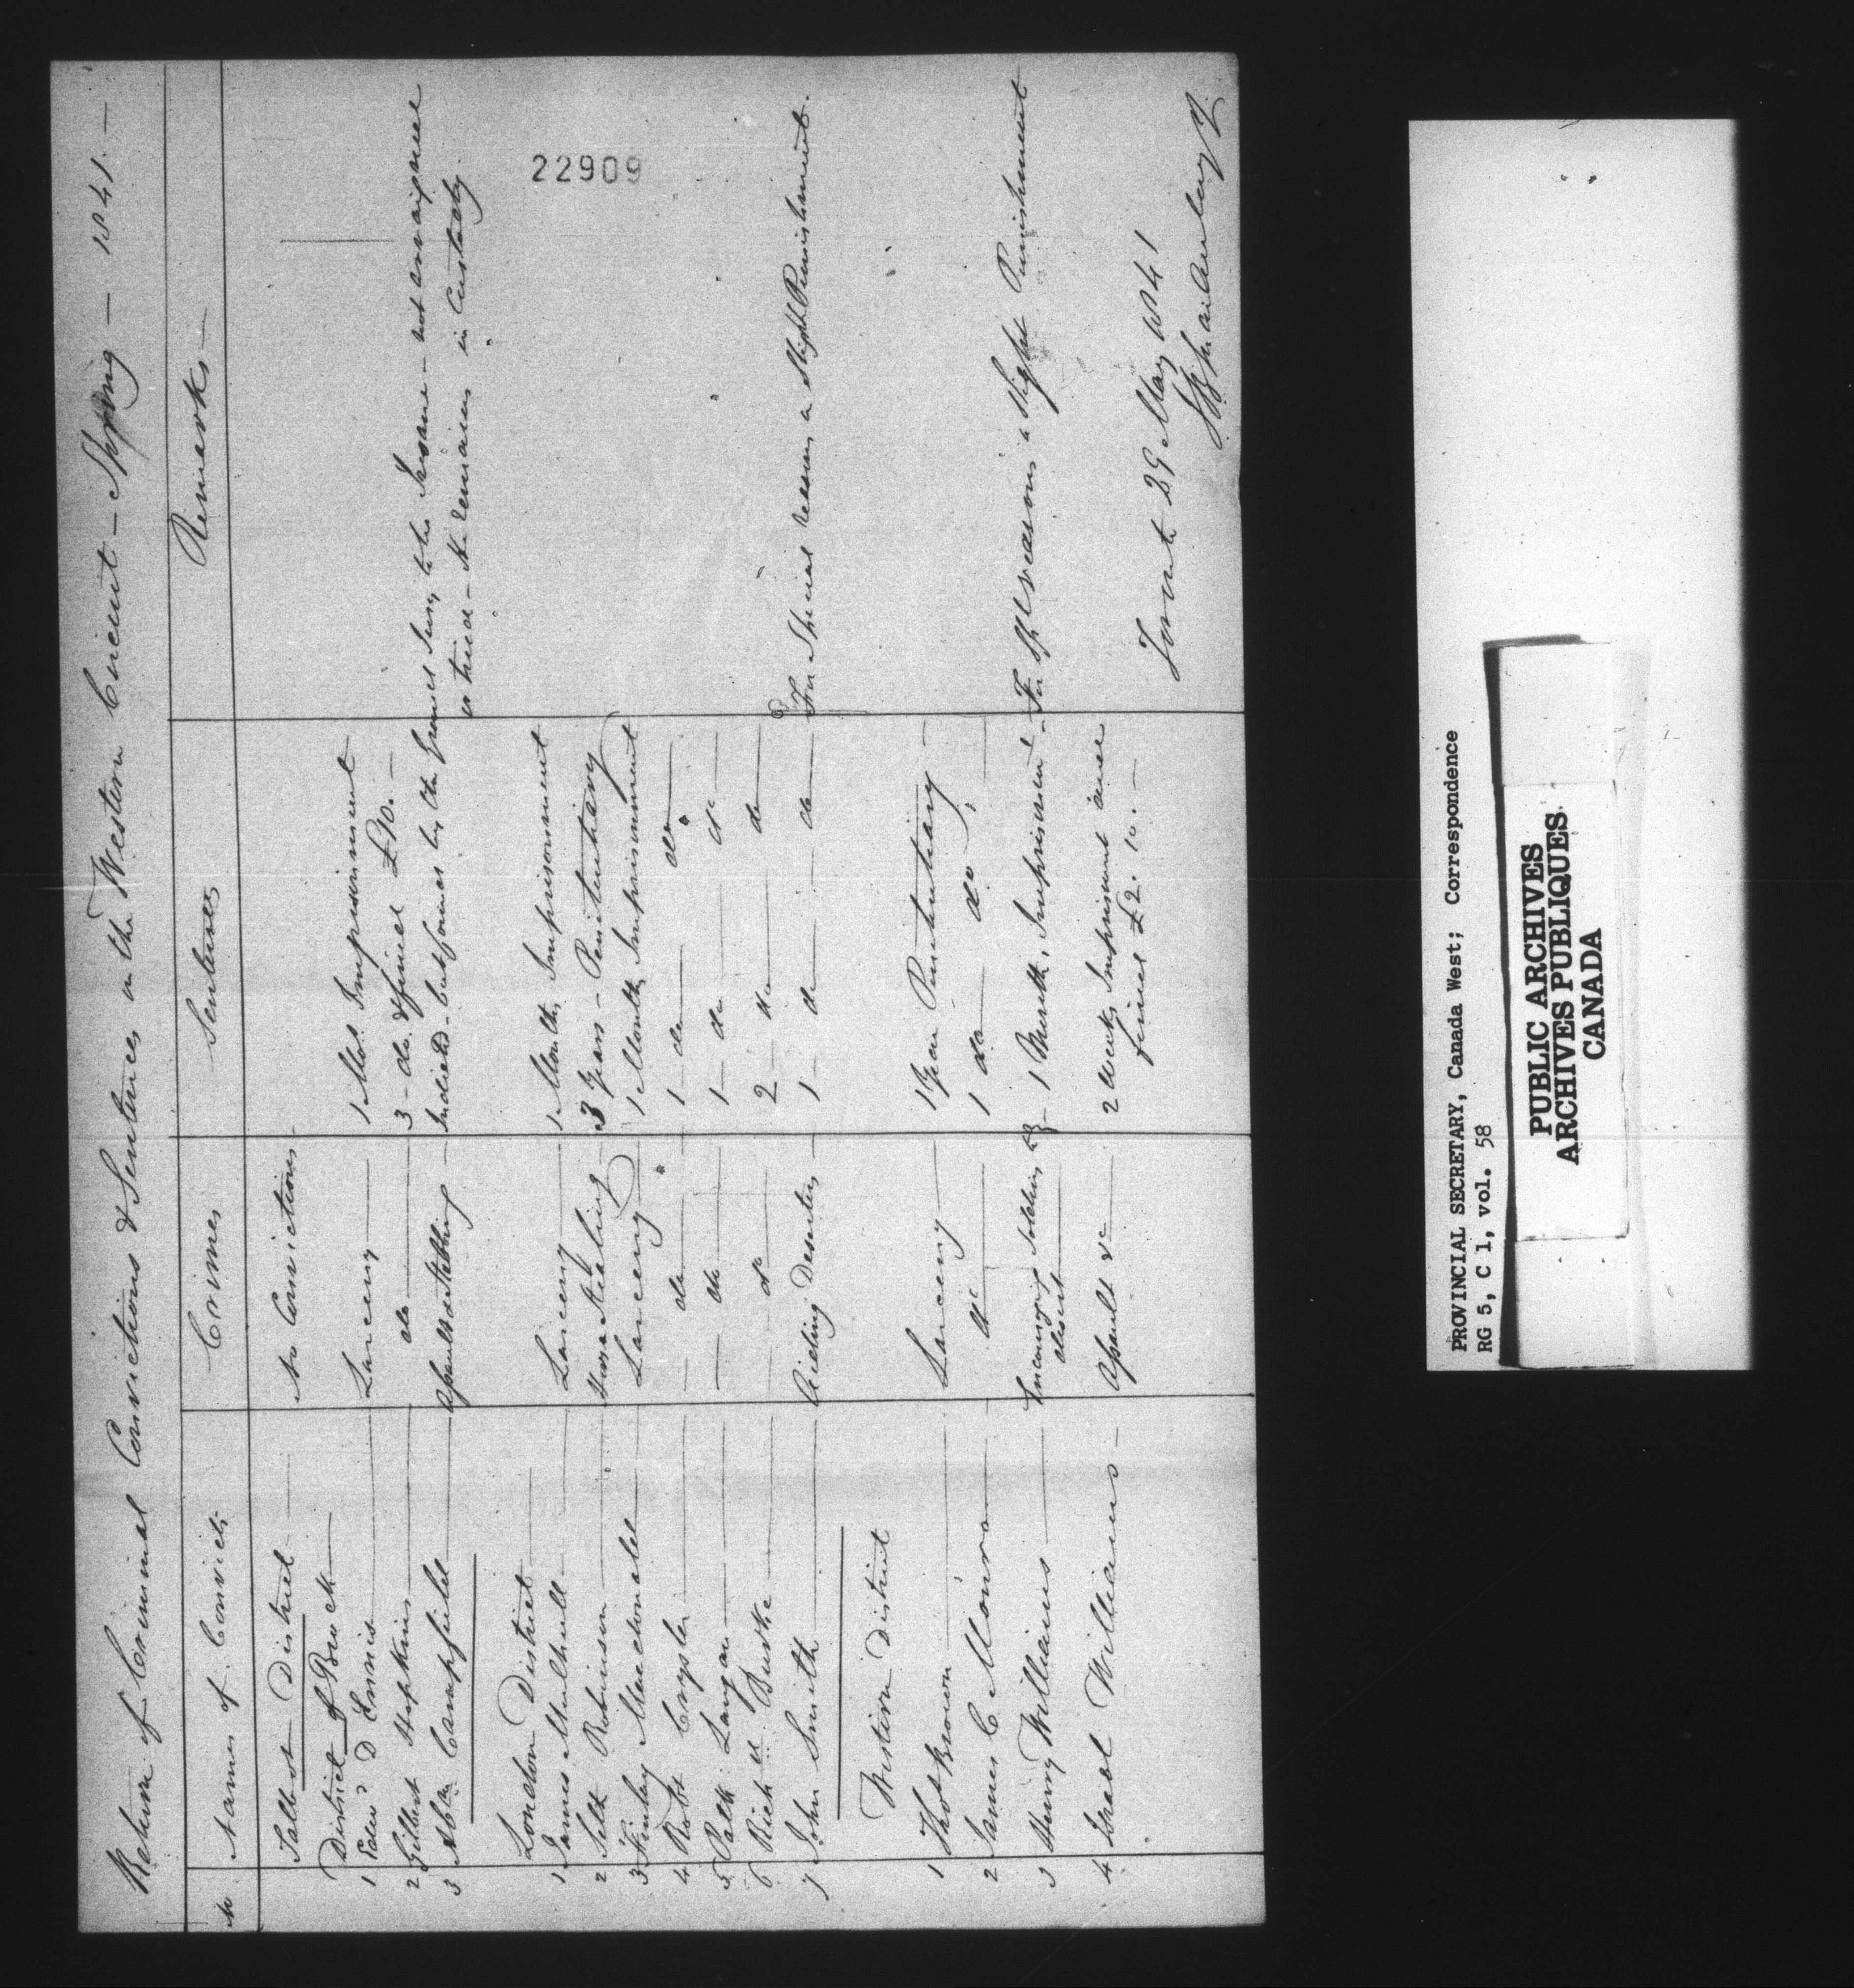 Return of Criminal Convictions & Sentences in the Western Circuit - Spring - 1841. -
No Names of Convicts Crimes Sentences Remarks -
Talbot District No Convictions
District of Brock
1 Edwd D Ennis Larceny 1 Mo. Imprisonment
2 Gilbert Hopkins do 3 - do. & fined £10. -
3 Abm Campfield Assault & Stabbing Indicted - but found by the Grand Jury to be Insane - not arraigned
or tried - He remains in Custody.
22909
London District
1 James Mulhall Larceny 1 Month, Imprisonment
2 Seth Robinson Horse Stealing 3 Years - Penitentiary
3 Finlay Macdonald Larceny 1 Month, Imprisonment
4 Robt Crysler do 1 do do
5 Patk Langan do 1 do do
6 Richd Burke do 2 do do
7 John Smith Aiding Deserters 1 do do For Special reasons a slight Punishment.
Western District
1 Thos Brown Larceny 1 Year Penitentiary
2 James C Monro do 1 do do
3 Henry Williams Encouraging Soldiers to 1 Month, Imprisonment - For Spl reasons a slight Punishment
desert
4 Israel Williams Assault &c 2 Weeks Imprisonment and
fined £2. 10. -
Toronto 29 May 1841
PROVINCIAL SECRETARY, Canada West; Correspondence
RG 5, C 1, vol. 58
PUBLIC ARCHIVES
ARCHIVES PUBLIQUES
CANADA